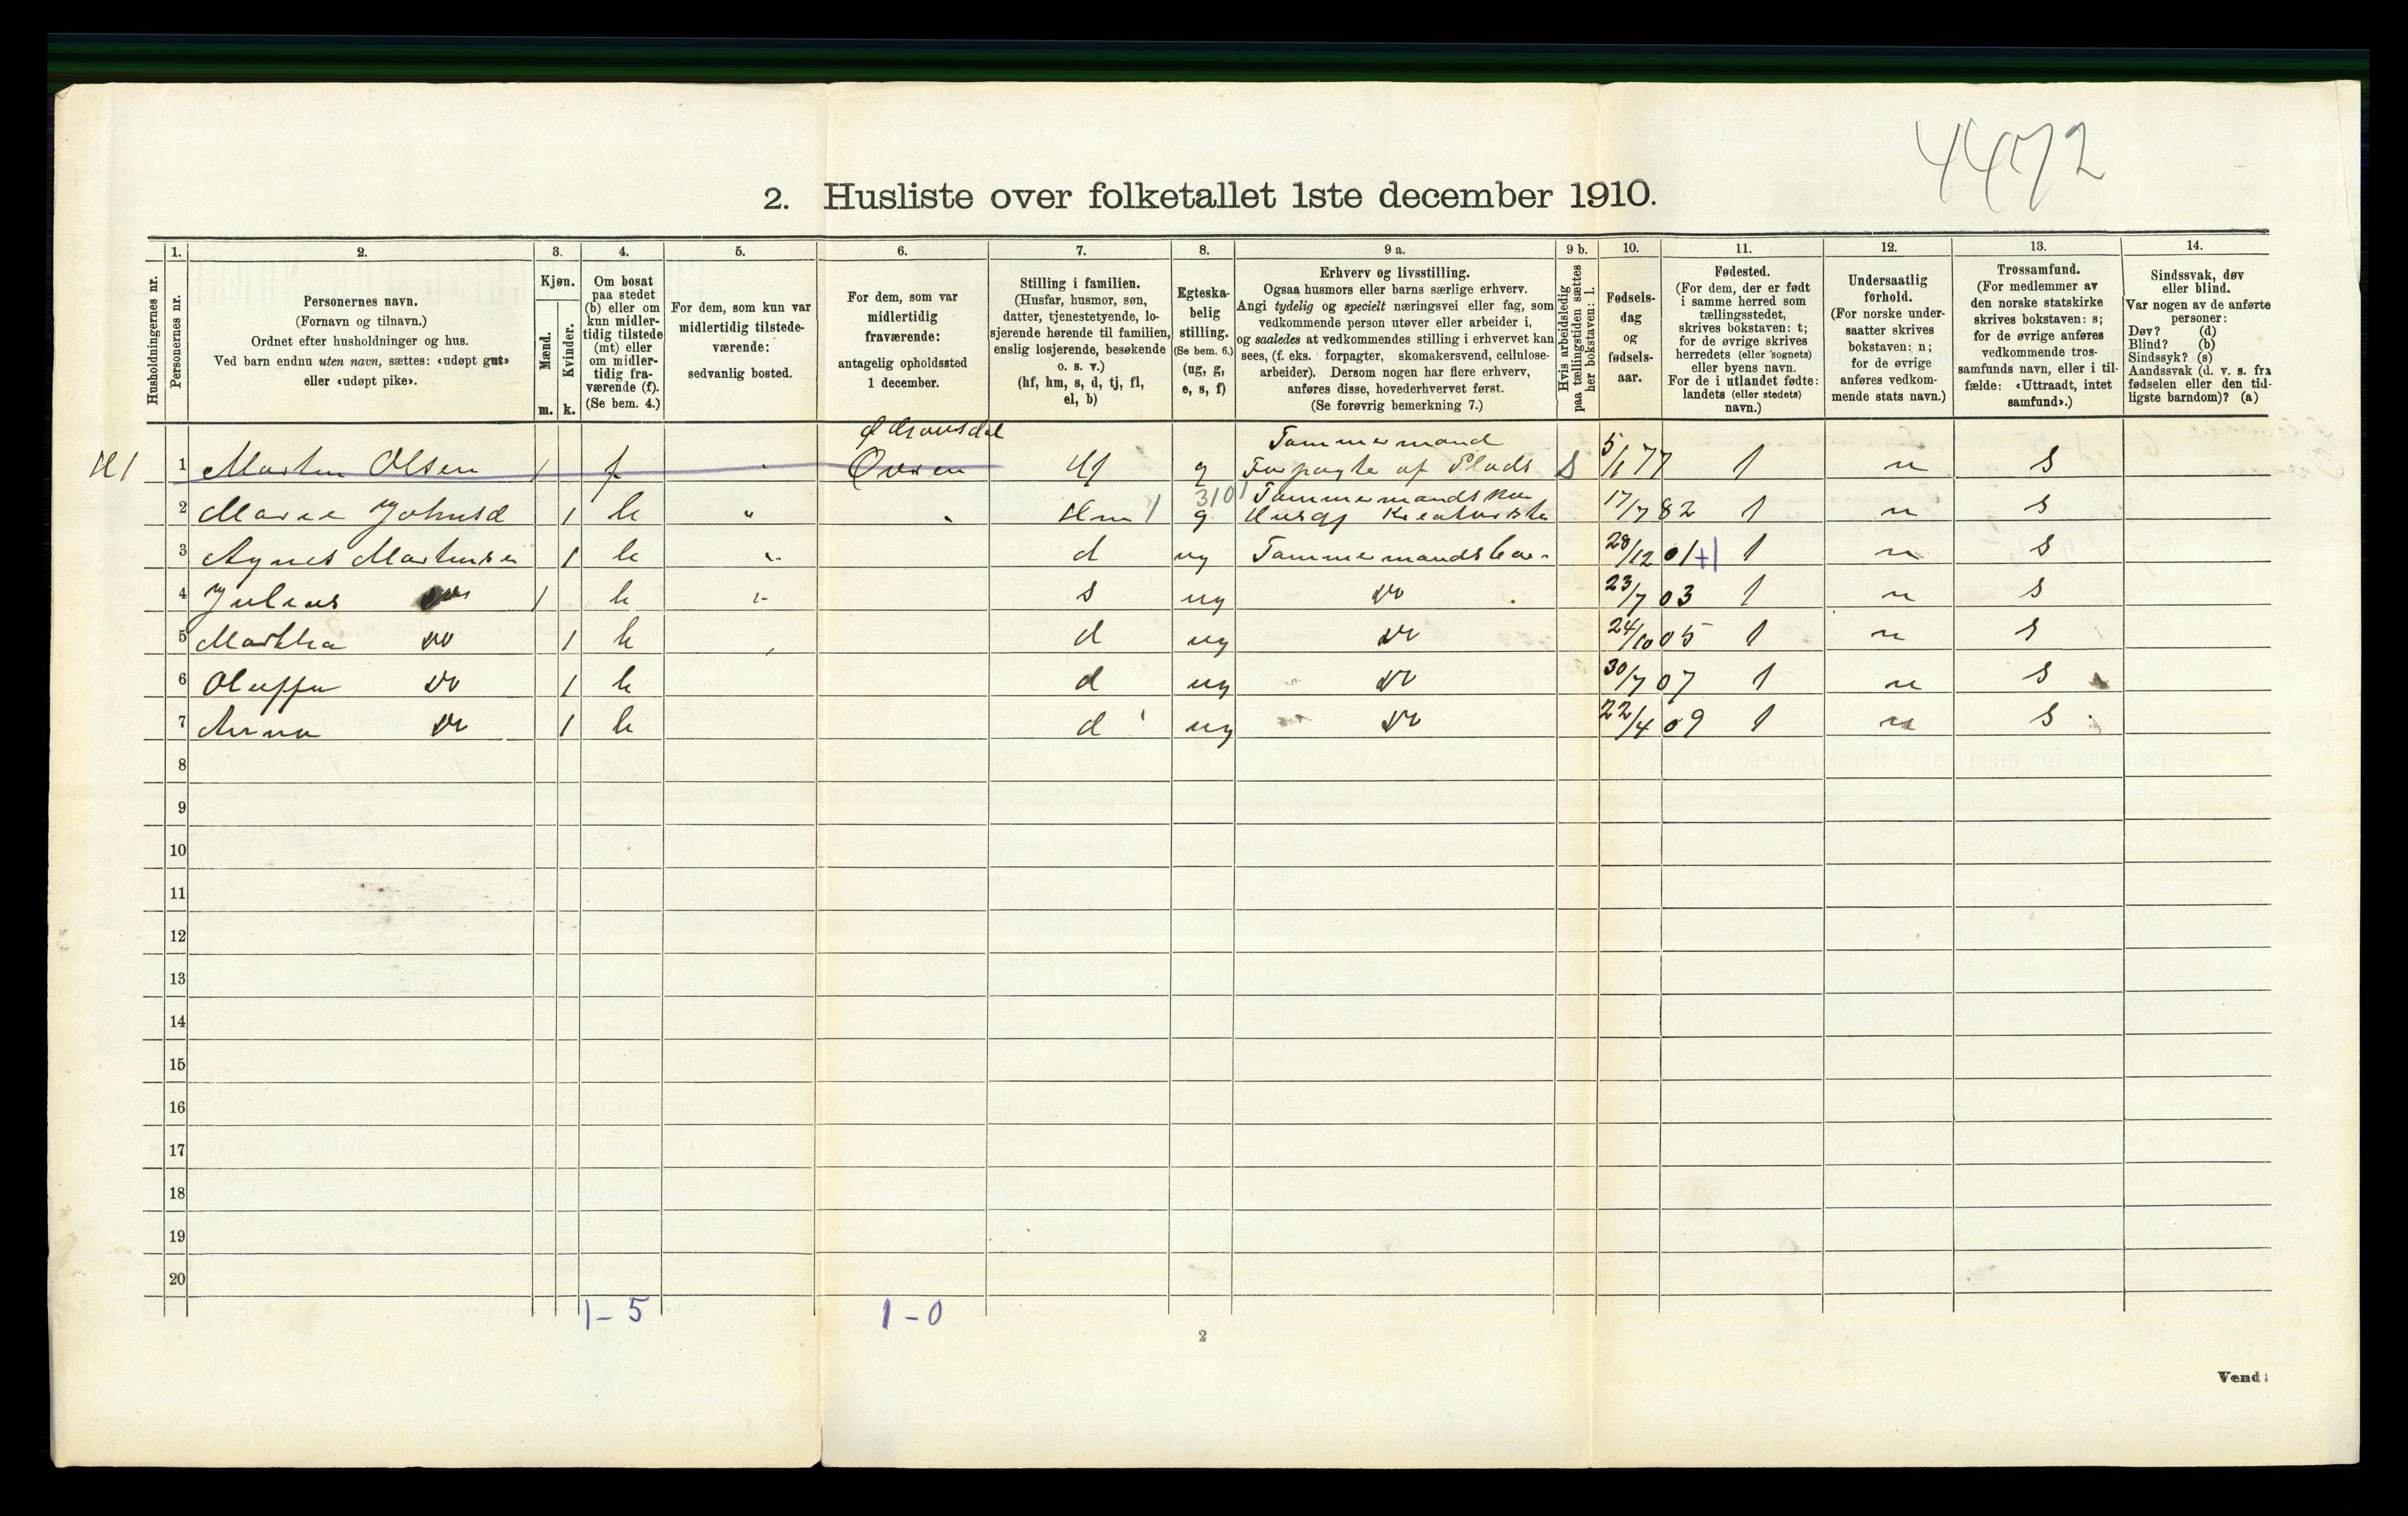 4472
2. Husliste over folketallet 1ste december 1910.
Husholdningernes nr.
1. Personernes nr.
2. Personernes navn. (Fornavn og tilnavn.) Ordnet efter husholdninger og hus. Ved barn endnu uten navn, sættes: «udøpt gut» eller «udøpt pike».
3. Kjøn. Mænd. m. Kvinder. k.
4. Om bosat paa stedet (b) eller om kun midlertidig tilstede (mt) eller om midlertidig fraværende (f). (Se bem. 4.)
5. For dem, som kun var midlertidig tilstedeværende: sedvanlig bosted.
6. For dem, som var midlertidig fraværende: antagelig opholdssted 1 december.
7. Stilling i familien. (Husfar, husmor, søn, datter, tjenestetyende, losjerende hørende til familien, enslig losjerende, besøkende o. s. v.) (hf, hm, s, d, tj, fl, el, b)
8. Egteskabelig stilling. (Se bem. 6.) (ug, g, e, s, f)
9 a. Erhverv og livsstilling. Ogsaa husmors eller barns særlige erhverv. Angi tydelig og specielt næringsvei eller fag, som vedkommende person utøver eller arbeider i, og saaledes at vedkommendes stilling i erhvervet kan sees, (f. eks. forpagter, skomakersvend, cellulosearbeider). Dersom nogen har flere erhverv, anføres disse, hovederhvervet først. (Se forøvrig bemerkning 7.)
9 b. Hvis arbeidsledig paa tællingstiden sættes her bokstaven: l.
10. Fødselsdag og fødselsaar.
11. Fødested. (For dem, der er født i samme herred som tællingsstedet, skrives bokstaven: t; for de øvrige skrives herredets (eller sognets) eller byens navn. For de i utlandet fødte: landets (eller stedets) navn.)
12. Undersaatlig forhold. (For norske undersaatter skrives bokstaven: n; for de øvrige anføres vedkommende stats navn.)
13. Trossamfund. (For medlemmer av den norske statskirke skrives bokstaven: s; for de øvrige anføres vedkommende trossamfunds navn, eller i tilfælde: «Uttraadt, intet samfund».)
14. Sindssvak, døv eller blind. Var nogen av de anførte personer: Døv? (d) Blind? (b) Sindssyk? (s) Aandssvak (d. v. s. fra fødselen eller den tidligste barndom)? (a)
H 1 1 Martin Olsen 1 f Hf g Tømmermand Forpagte af Plads S 5/1 77 t n s
2 Maree Johnsd 1 b " Hm 1 g 3101 17/7 82 t n s
3 Agnes Martinsen 1 b " d ug Tømmermandsbar- 28/12 01 +1 t n s
4 Julius do 1 b " s ug do 23/7 03 t n s
5 Martha do 1 b d ug do 24/10 05 t n s
6 do 1 b d ug do 30/7 07 t n s
7 Anna do 1 b d ug do 22/4 09 t n s
8
9
10
11
12
13
14
15
16
17
18
19
20
1-5 1-0
2
Vend!